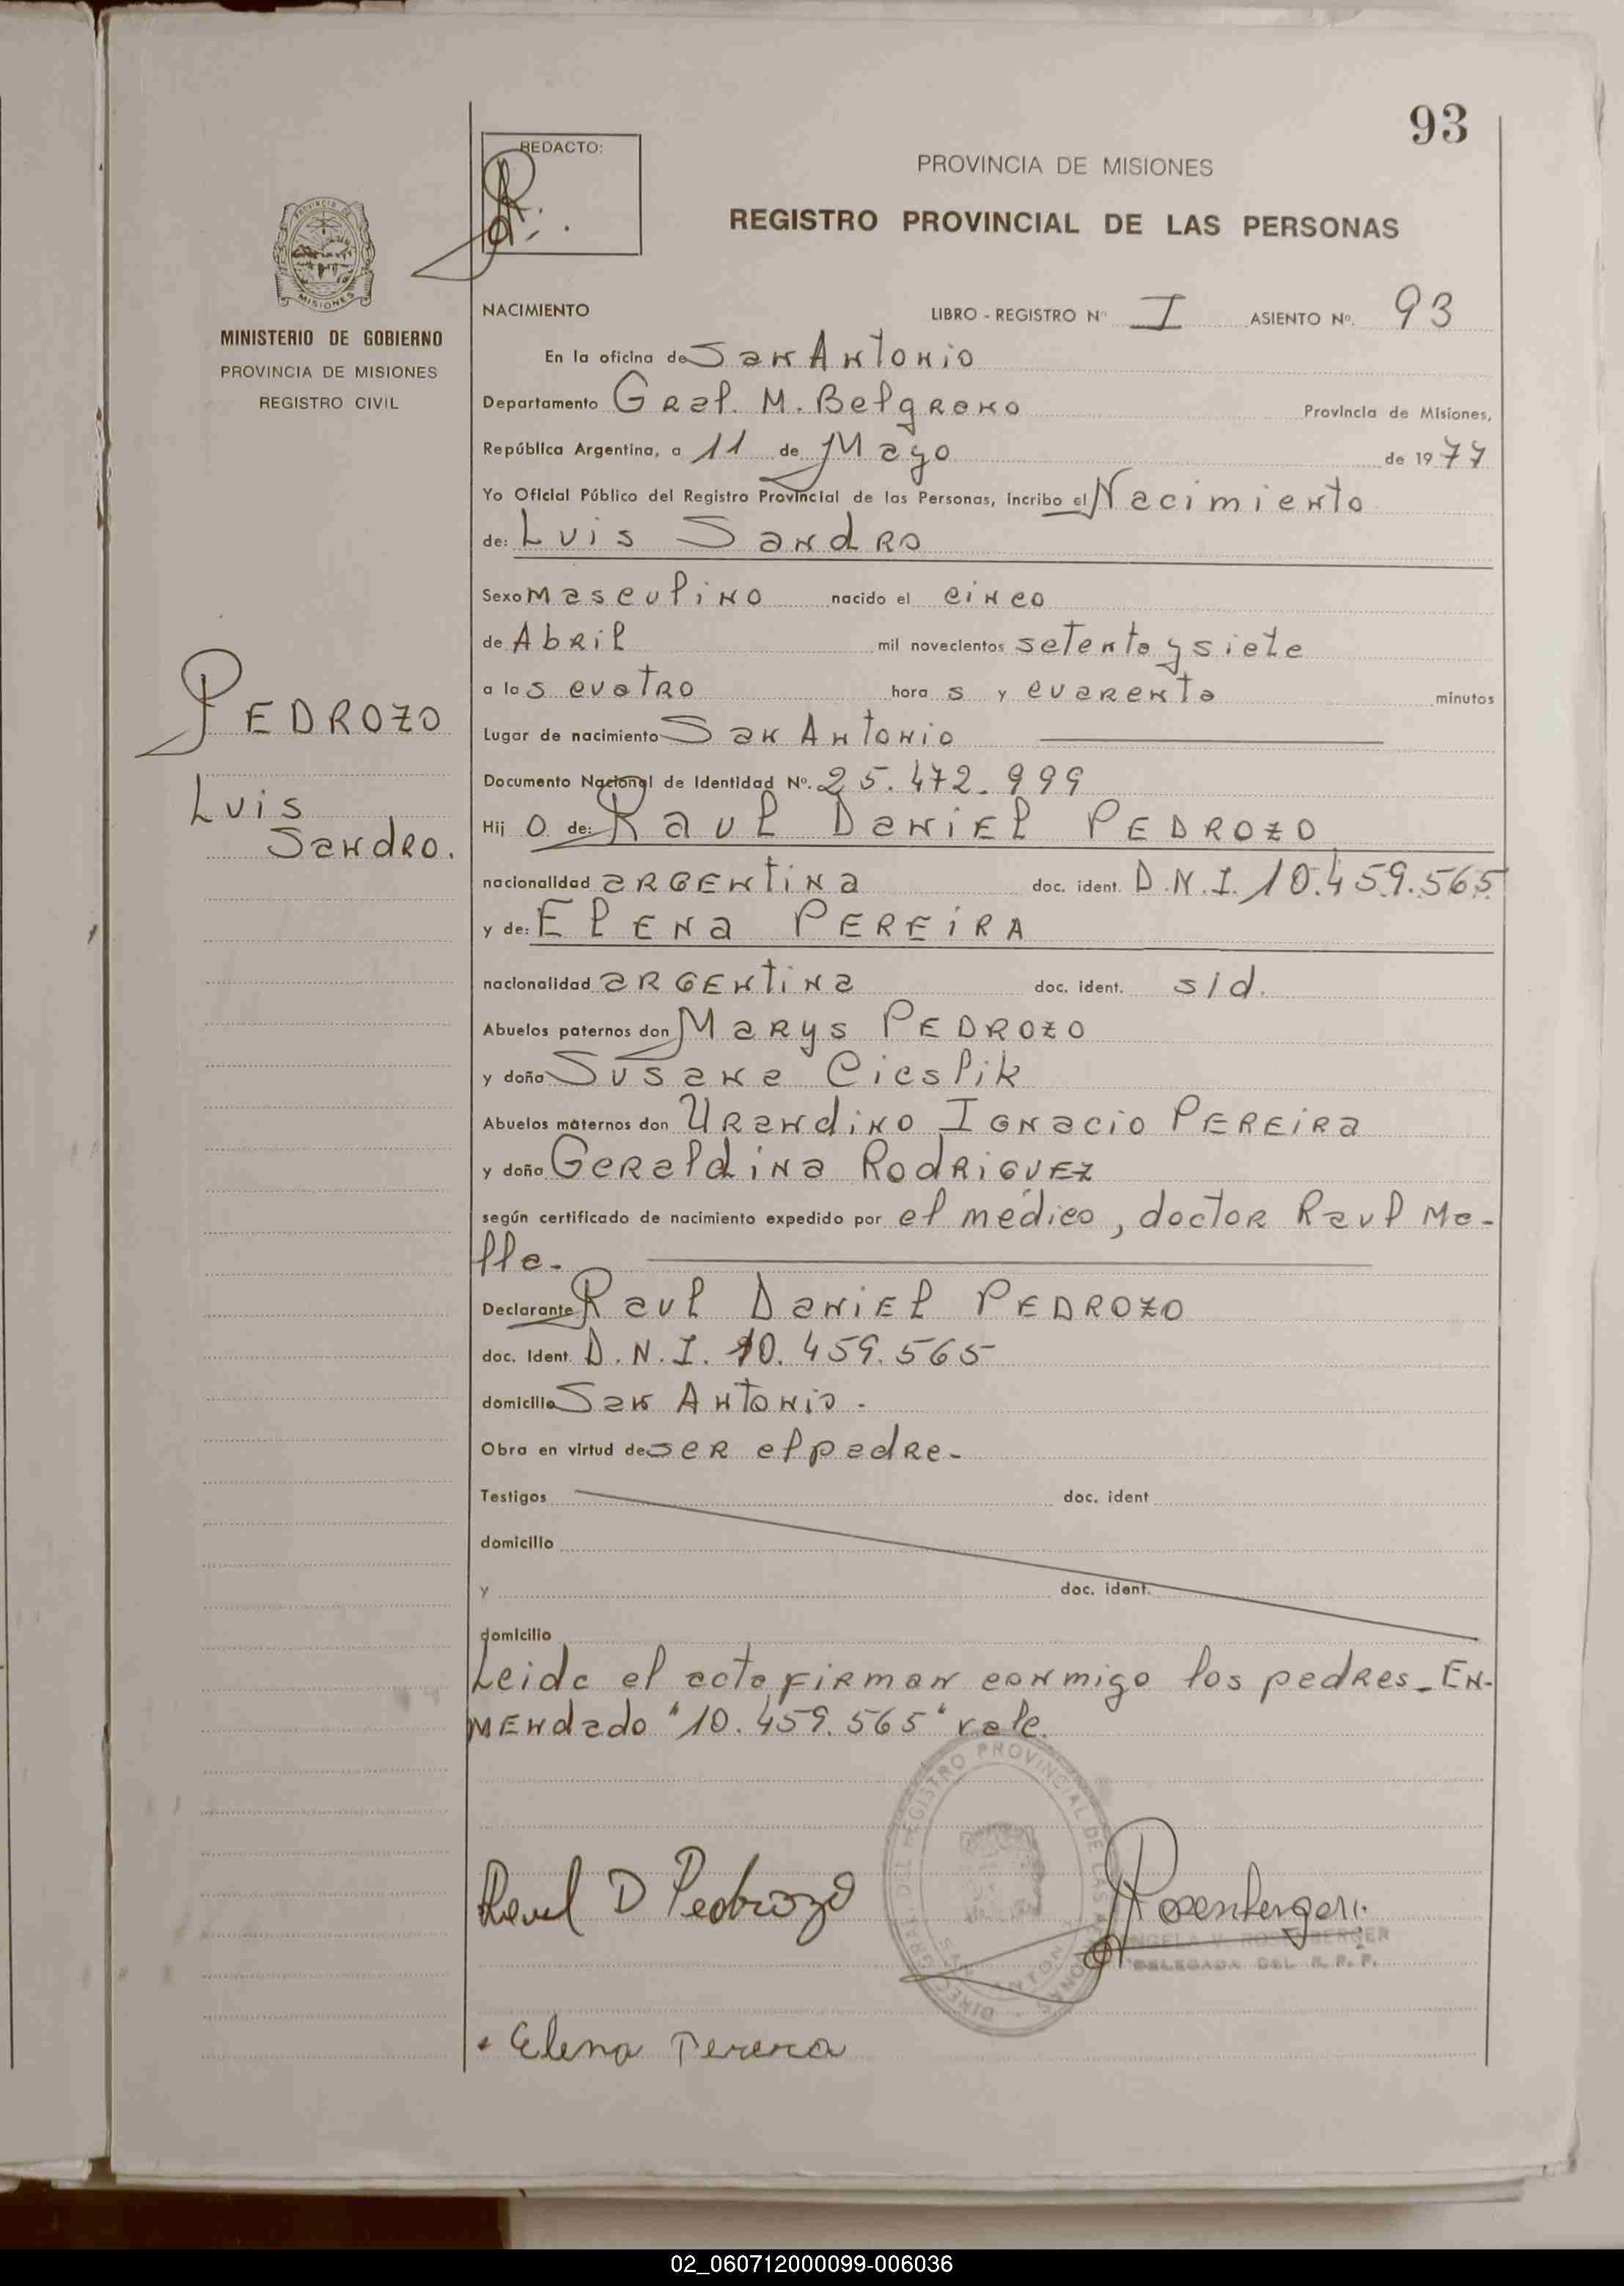 93
REDACTO:
PROVINCIA DE MISIONES
REGISTRO PROVINCIAL DE LAS PERSONAS
PROVINCIA DE
MISIONES
MINISTERIO DE GOBIERNO
PROVINCIA DE MISIONES
REGISTRO CIVIL
PEDROZO
Luis
Sandro.
NACIMIENTO LIBRO - REGISTRO Nº I ASIENTO Nº. 93
En la oficina de San Antonio
Departamento Gral. M. Belgrano Provincia de Misiones,
República Argentina, a 11 de Mayo de 1977
Yo Oficial Público del Registro Provincial de las Personas, incribo el Nacimiento
de: Luis Sandro
Sexo masculino nacido el cinco
de Abril mil novecientos setenta y siete
a las cuatro horas y cuarenta minutos
Lugar de nacimiento San Antonio
Documento Nacional de Identidad Nº. 25.472.999
Hijo de: Raul Daniel PEDROZO
nacionalidad argentina doc. ident. D.N.I. 10.459.565
y de: Elena PEREIRA
nacionalidad argentina doc. ident. s/d.
Abuelos paternos don Marys PEDROZO
y doña Susana Cieslik
Abuelos maternos don Urandino Ignacio PEREIRA
y doña Geraldina RODRIGUEZ
según certificado de nacimiento expedido por el médico, doctor Raul Me-
lla.
Declarante Raul Daniel PEDROZO
doc. Ident. D.N.I. 10.459.565
domicilio San Antonio.
Obra en virtud de ser el padre.
Testigos doc. ident
domicilio
y doc. ident.
domicilio
Leida el acta firman conmigo los padres_ En-
mendado "10.459.565" vale.
DIREC. GRAL. DEL REGISTRO PROVINCIAL DE LAS PERSONAS
SAN ANTONIO
Raul D Pedrozo
Rosenberger
ANGELA V. ROSENBERGER
DELEGADA DEL R.P.P.
Elena Perera
02_060712000099-006036